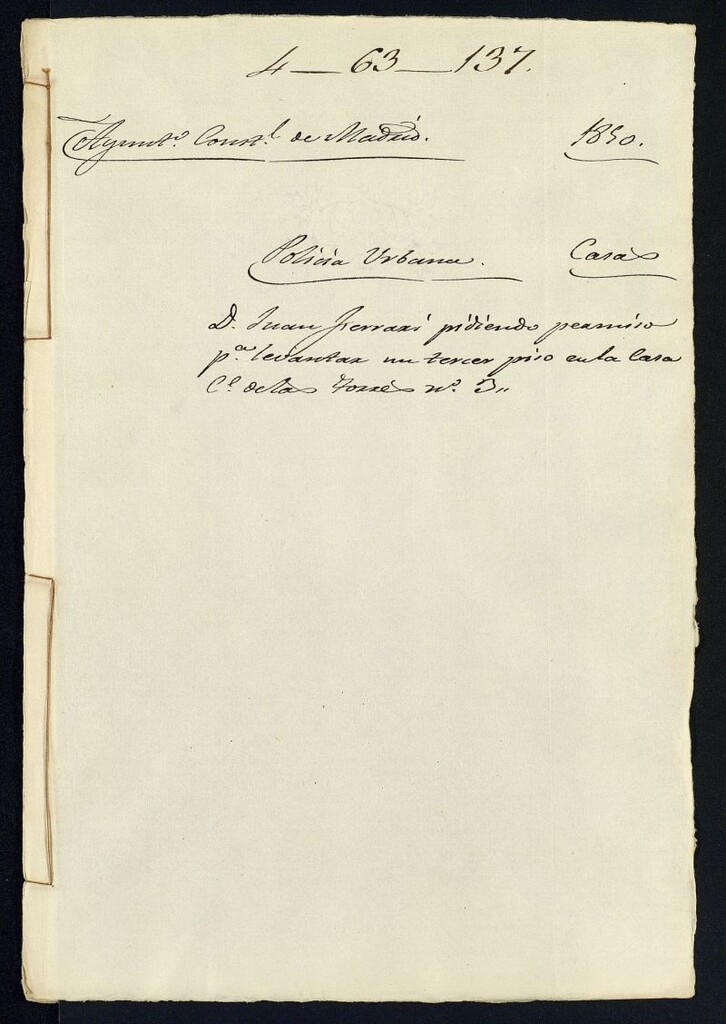 4 — 63 — 137.
Ayunt.o Const.l de Madrid. 1850.
Policia Urbana. Casas
D. Juan Ferrari pidiendo permiso
p.a levantar un tercer piso en la Casa
C.l de las Torres n.o 3,,